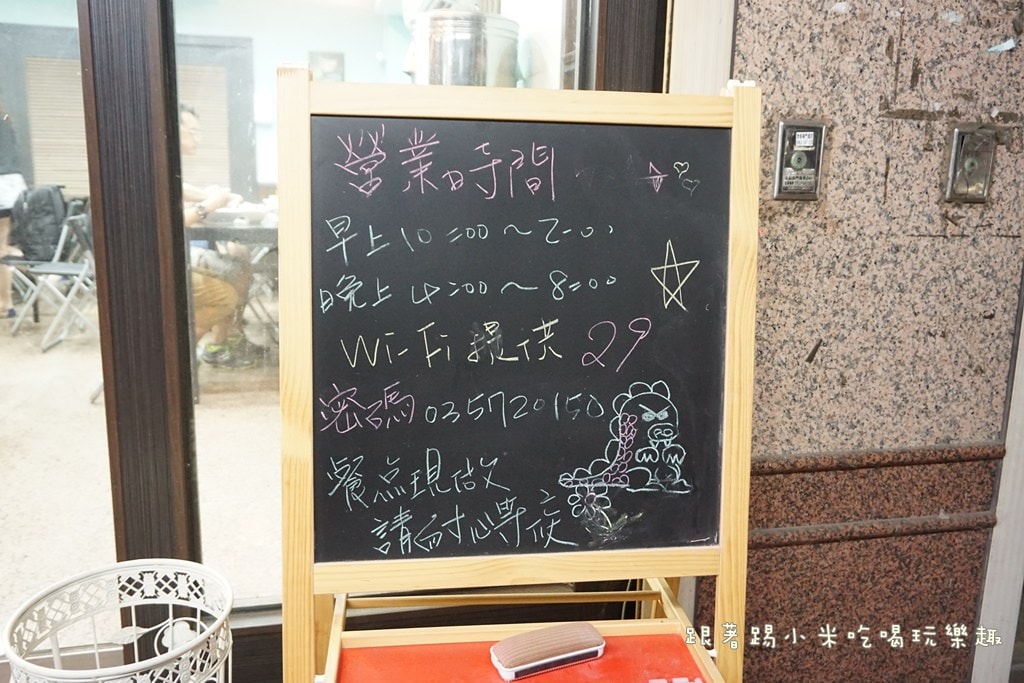 營業時間
早上 10:00～2:00
晚上 4:00～8:00
Wi-Fi 提供 29
密碼 035720150
餐点現做
請耐心等候
跟著踢小米吃喝玩樂趣